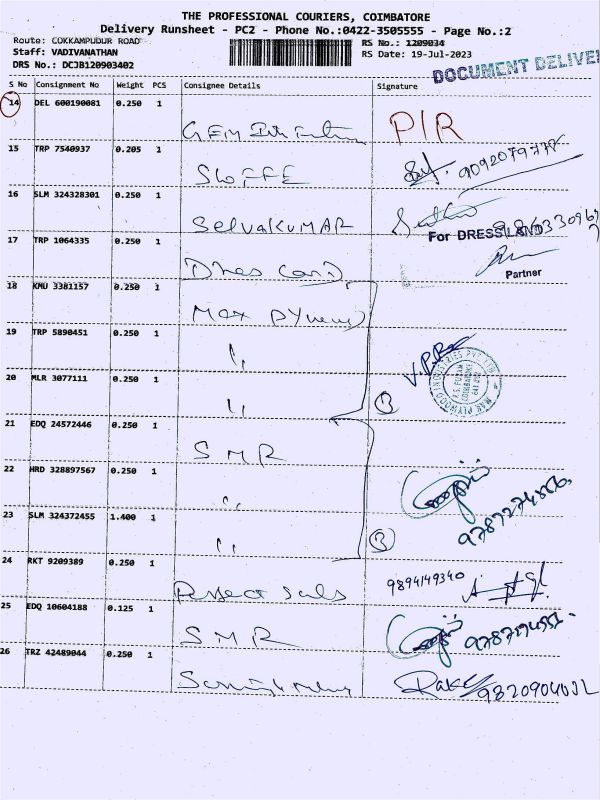 THE PROFESSIONAL COURIERS, COIMBATORE
Delivery Runsheet - PC2 - Phone No.:0422-3505555 - Page No.:2
Route: COKKAMPUDUR ROAD
Staff: VADIVANATHAN
DRS No.: DCJB120903402
RS No.: 1209034
RS Date: 19-Jul-2023
DOCUMENT DELIVE
S No Consignment No Weight PCS Consignee Details Signature
14 DEL 600190081 0.250 1
PIR
15 TRP 7540937 0.205 1
16 SLM 324328301 0.250 1
SELVAKUMAR
For DRESS LAND
17 TRP 1064335 0.250 1
Partner
18 KMU 3381157 0.250 1
Max
19 TRP 5890451 0.250 1
"
20 MLR 3077111 0.250 1
"
3
21 EDQ 24572446 0.250 1
SMR
22 HRD 328897567 0.250 1
"
23 SLM 324372455 1.400 1
"
3
24 RKT 9209389 0.250 1
9894149340
25 EDQ 10604188 0.125 1
SMR
26 TRZ 42489044 0.250 1